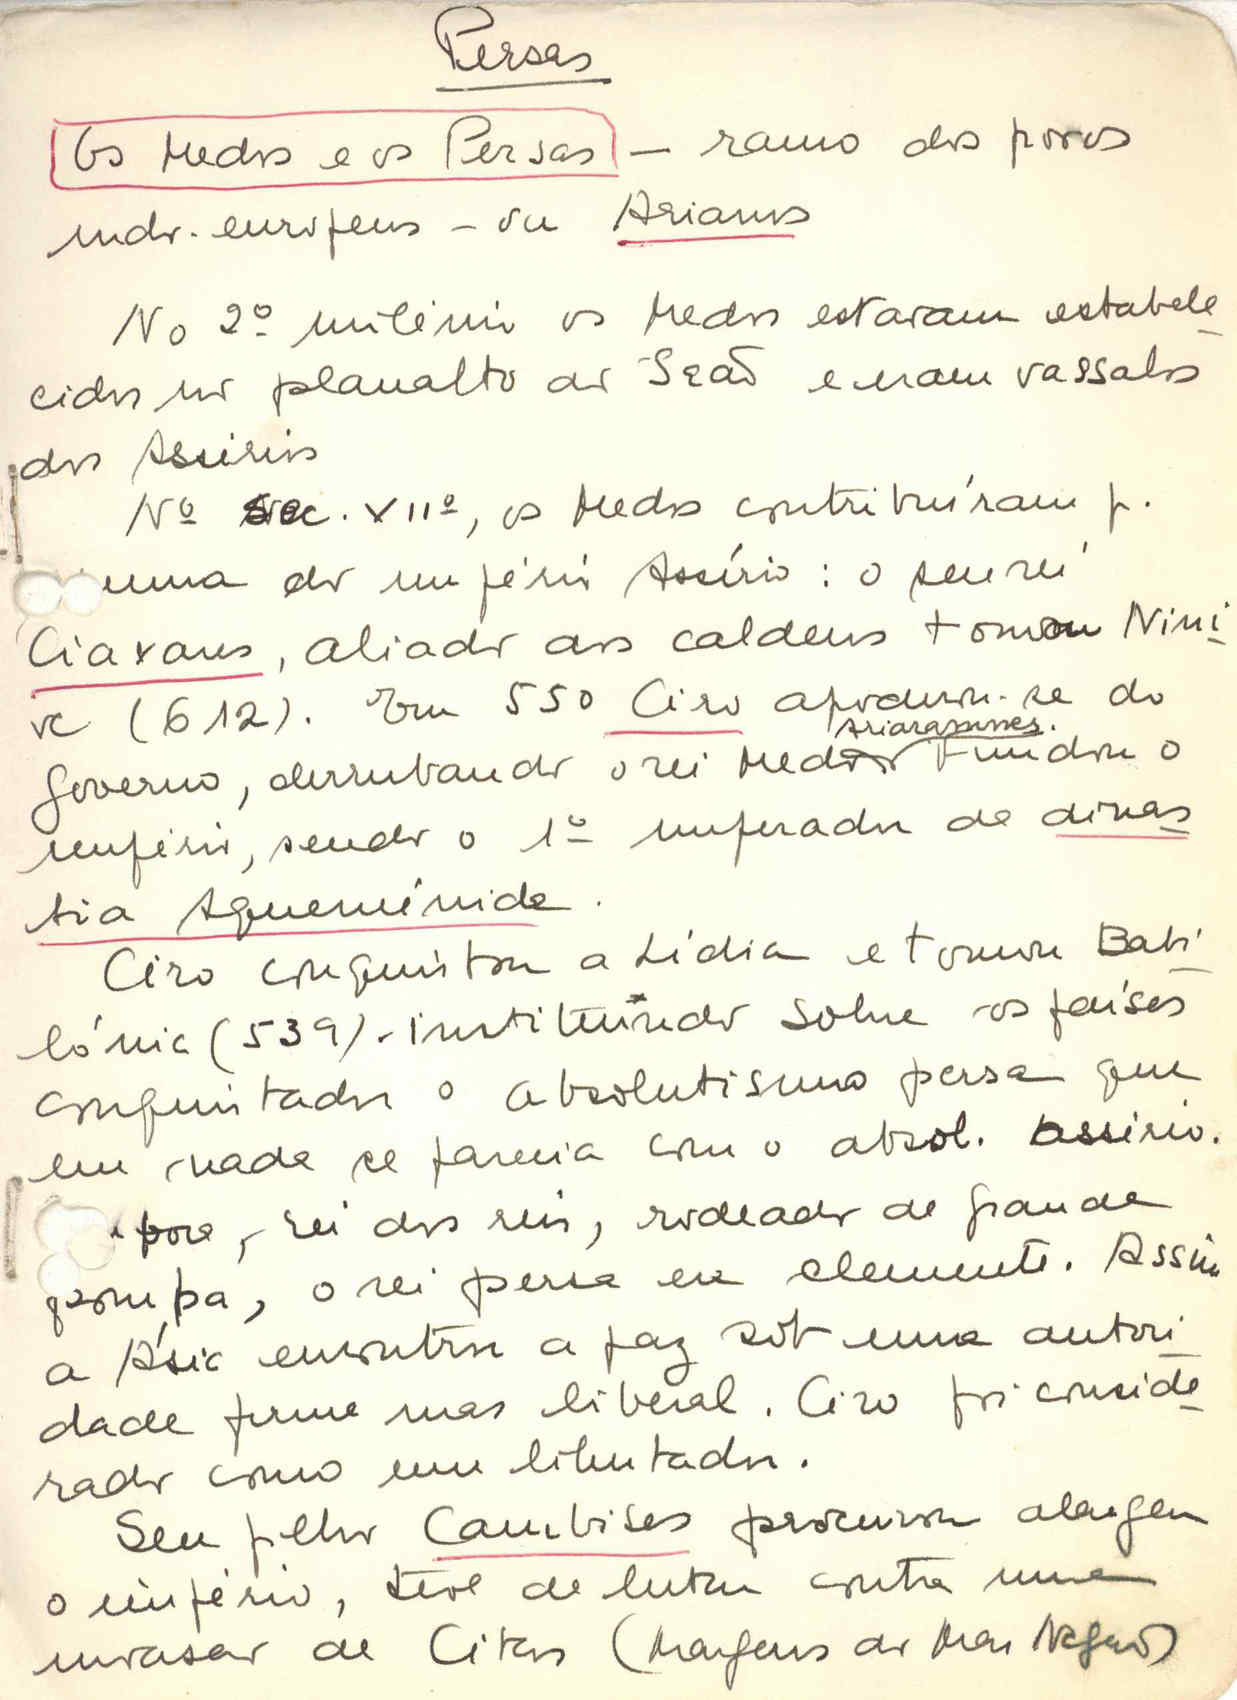 Persas
Os Medos e os Persas – ramo dos povos
indo-europeus – ou Arianos
No 2º milénio os Medos estavam estabele
cidos no planalto do Irão e eram vassalos
dos Assírios
Nº Séc. XIIº, os Medos contribuíram p.
do império Assírio : o seu rei
Ciaxares, aliado dos caldeus tomou Níni
ve (612). Em 550 Ciro apoderou-se do
governo, derrubando o rei Medo Fundou o
império, sendo o 1º imperador da dinas
tia Aqueménida.
Ciro conquistou a Lídia e tomou Babi
lónia (539). instituindo sobre os países
conquistados o absolutismo persa que
em nada se parecia com o absol. assírio.
rei dos reis, rodeado de grande
pompa, o rei persa era clemente. Assim
a Ásia encontrou a paz sob uma autori
dade firme mas liberal. Ciro foi conside
rado como um libertador.
Seu filho Cambises procurou alargar
o império, teve de lutar contra uma
invasão de Citas (Margens do Mar Negro)